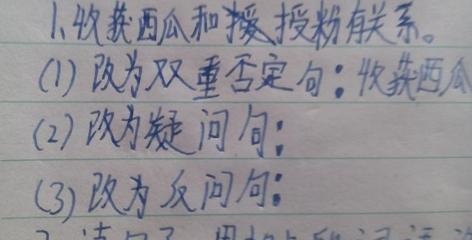 1、收获西瓜和授粉有关系。
(1) 改为双重否定句：收获西瓜
(2) 改为疑问句：
(3) 改为反问句：